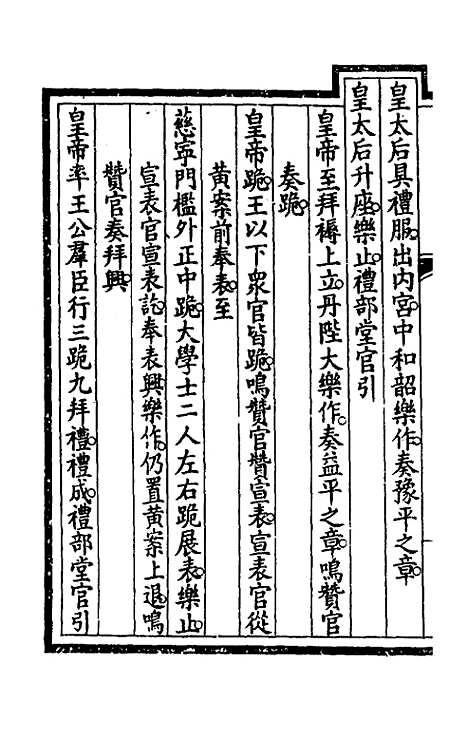 皇太后具禮服出内宮中和韶樂作奏豫平之章
皇太后升座樂止禮部堂官引
皇帝至拜褥上立丹陛大樂作奏益平之章鳴贊官
奏跪
皇帝跪王以下衆官皆跪鳴贊官贊宣表宣表官從
黃案前奉表至
慈寧門檻外正中跪大學士二人左右跪展表樂止
宣表官宣表訖奉表興樂作仍置黃案上退鳴
贊官奏拜興
皇帝率王公羣臣行三跪九拜禮禮成禮部堂官引